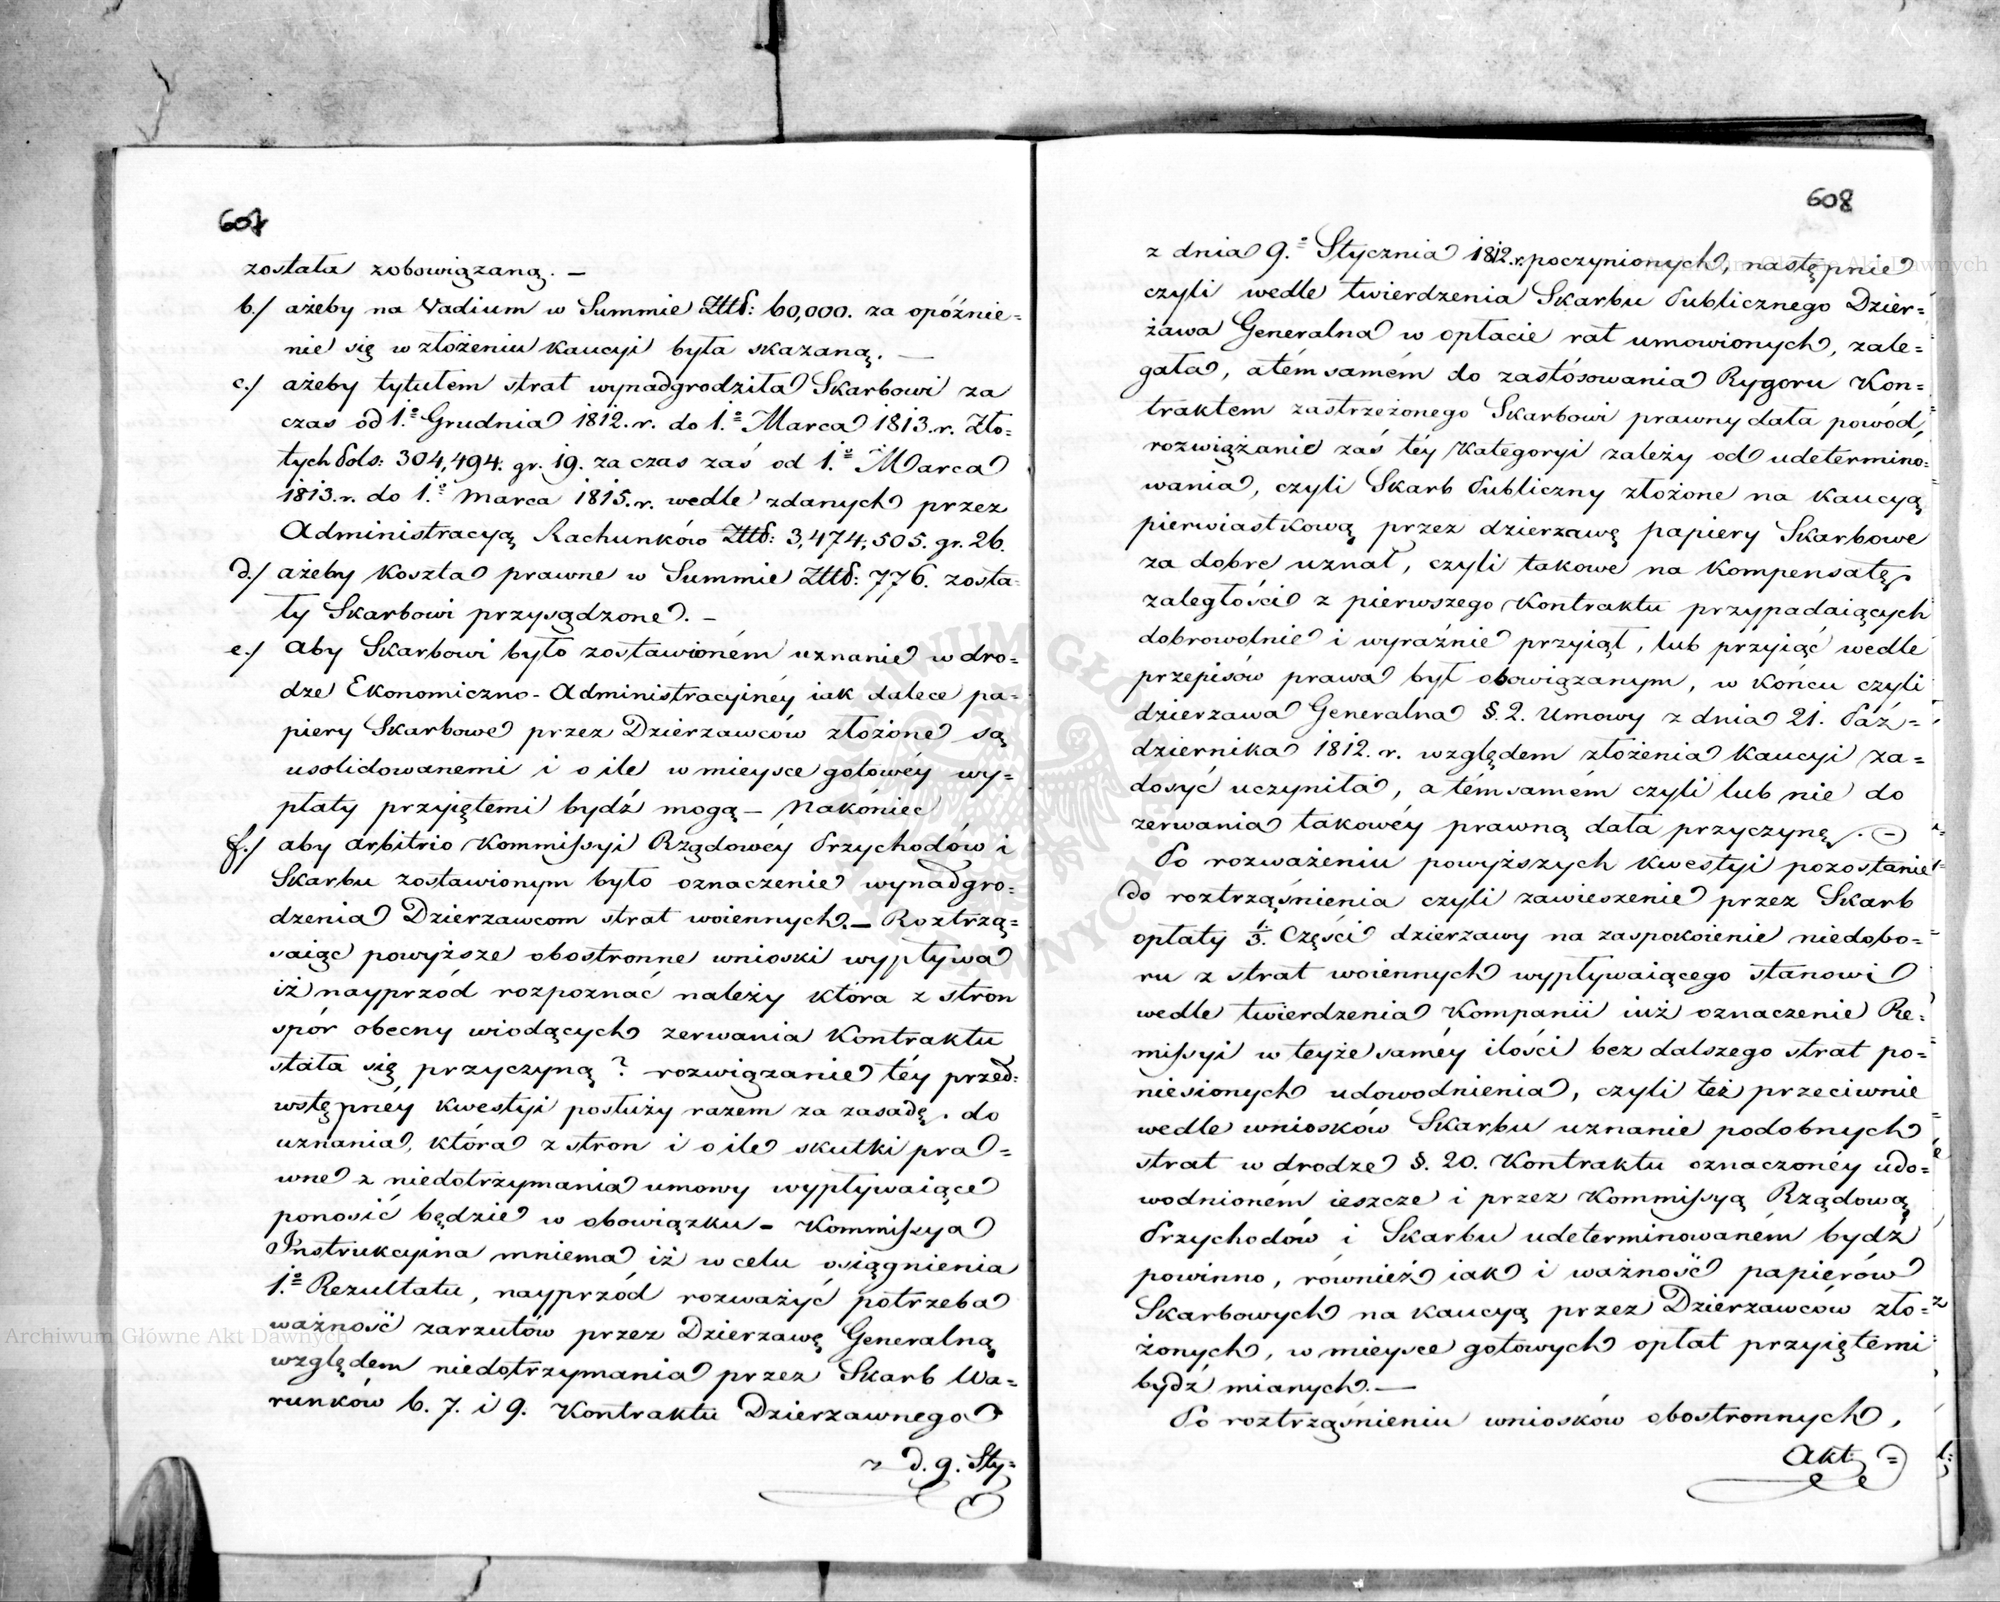 607
została zobowiązaną. —
b./ ażeby na Vadium w Summie Złtł: 60,000. za opóźnie=
nie się w złożeniu Kaucyi była skazaną. —
c./ ażeby tytułem strat wynadgrodziła Skarbowi za
czas od 1.º Grudnia 1812. r. do 1.º Marca 1813. r. Zło=
tych Pols: 304,494. gr. 19. za czas zaś od 1.º Marca
1813. r. do 1.º Marca 1815. r. wedle zdanych przez
Administracyą Rachunków Złtł: 3,474,505. gr. 26.
d./ ażeby Koszta prawne w Summie Złtł: 776. zosta=
ły Skarbowi przysądzone. —
e./ aby Skarbowi było zostawioném uznanie w dro=
dze Ekonomiczno-Administracyinéy iak dalece pa=
piery Skarbowe przez Dzierzawców złożone są
usolidowanemi i o ile w mieysce gotowéy wy=
płaty przyiętemi bydź mogą — Nakóniec
f./ aby arbitrio Kommissyi Rządowéy Przychodów i
Skarbu zostawionym było oznaczenie wynadgro=
dzenia Dzierzawcom strat woiennych. — Roztrzą=
saiąc powyższe obostronne wnioski wypływa
iż nayprzód rozpoznać należy która z stron
spór obecny wiodących zerwania Kontraktu
stała się przyczyną? rozwiązanie téy przed=
wstępnéy Kwestyi posłuży razem za zasadę do
uznania, która z stron i o ile skutki pra=
wne z niedotrzymania umowy wypływaiące
ponosić będzie w obowiązku — Kommissya
Instrukcyina mniema iż w celu osiągnienia
1.º Rezultatu, nayprzód rozważyć potrzeba
ważność zarzutów przez Dzierzawę Generalną
względem niedotrzymania przez Skarb Wa=
runków 6. 7. i 9. Kontraktu Dzierzawnego
z d. 9. Sty=
608
z dnia 9.º Stycznia 1812. r. poczynionych, następnie
czyli wedle twierdzenia Skarbu Publicznego Dzier=
żawa Generalna w opłacie rat umowionych, zale=
gała, a tém samém do zastósowania Rygoru Kon=
traktem zastrzeżonego Skarbowi prawny dała powód,
rozwiązanie zaś téy Kategoryi zależy od udetermino=
wania, czyli Skarb Publiczny złożone na Kaucyą
pierwiastkową przez dzierzawę papiery Skarbowe
za dobre uznał, czyli takowe na Kompensatę
zaległości z pierwszego Kontraktu przypadaiących
dobrowolnie i wyraźnie przyiął, lub przyiąć wedle
przepisów prawa był obowiązanym, w końcu czyli
dzierzawa Generalna §. 2. Umowy z dnia 21. Paź=
dziernika 1812. r. względem złożenia Kaucyi za=
dosyć uczyniła, a tém samém czyli lub nie do
zerwania takowéy prawną dała przyczynę. —
Po rozważeniu powyższych Kwestyi pozostanie
do roztrząśnienia czyli zawieszenie przez Skarb
opłaty 1/3. Części dzierzawy na zaspokoienie niedobo=
ru z strat woiennych wypływaiącego stanowi
wedle twierdzenia Kompanii iuż oznaczenie Re=
missyi w teyże saméy ilości bez dalszego strat po=
niesionych udowodnienia, czyli też przeciwnie
wedle wniosków Skarbu uznanie podobnych
strat w drodze §. 20. Kontraktu oznaczonéy udo=
wodnioném ieszcze i przez Kommissyą Rządową
Przychodów i Skarbu udeterminowaném bydź
powinno, równieź iak i ważność papierów
Skarbowych na Kaucyą przez Dzierzawców zło=
żonych, w mieysce gotowych opłat przyiętemi
bydź mianych. —
Po roztrząśnieniu wniosków obostronnych,
Akt: =
Archiwum Główne Akt Dawnych